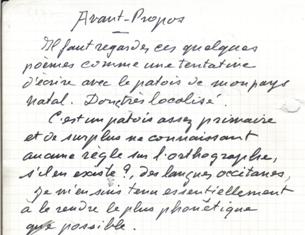 Avant-Propos
Il faut regarder ces quelques
poèmes comme une tentative
d'écrire avec le patois de mon pays
natal. Donc très localisé.
C'est un patois assez primaire
et de surplus ne connaissant
aucune règle sur l'orthographe,
s'il en existe ?, des langues occitanes,
je m'en suis tenu essentiellement
à le rendre le plus phonétique
que possible.